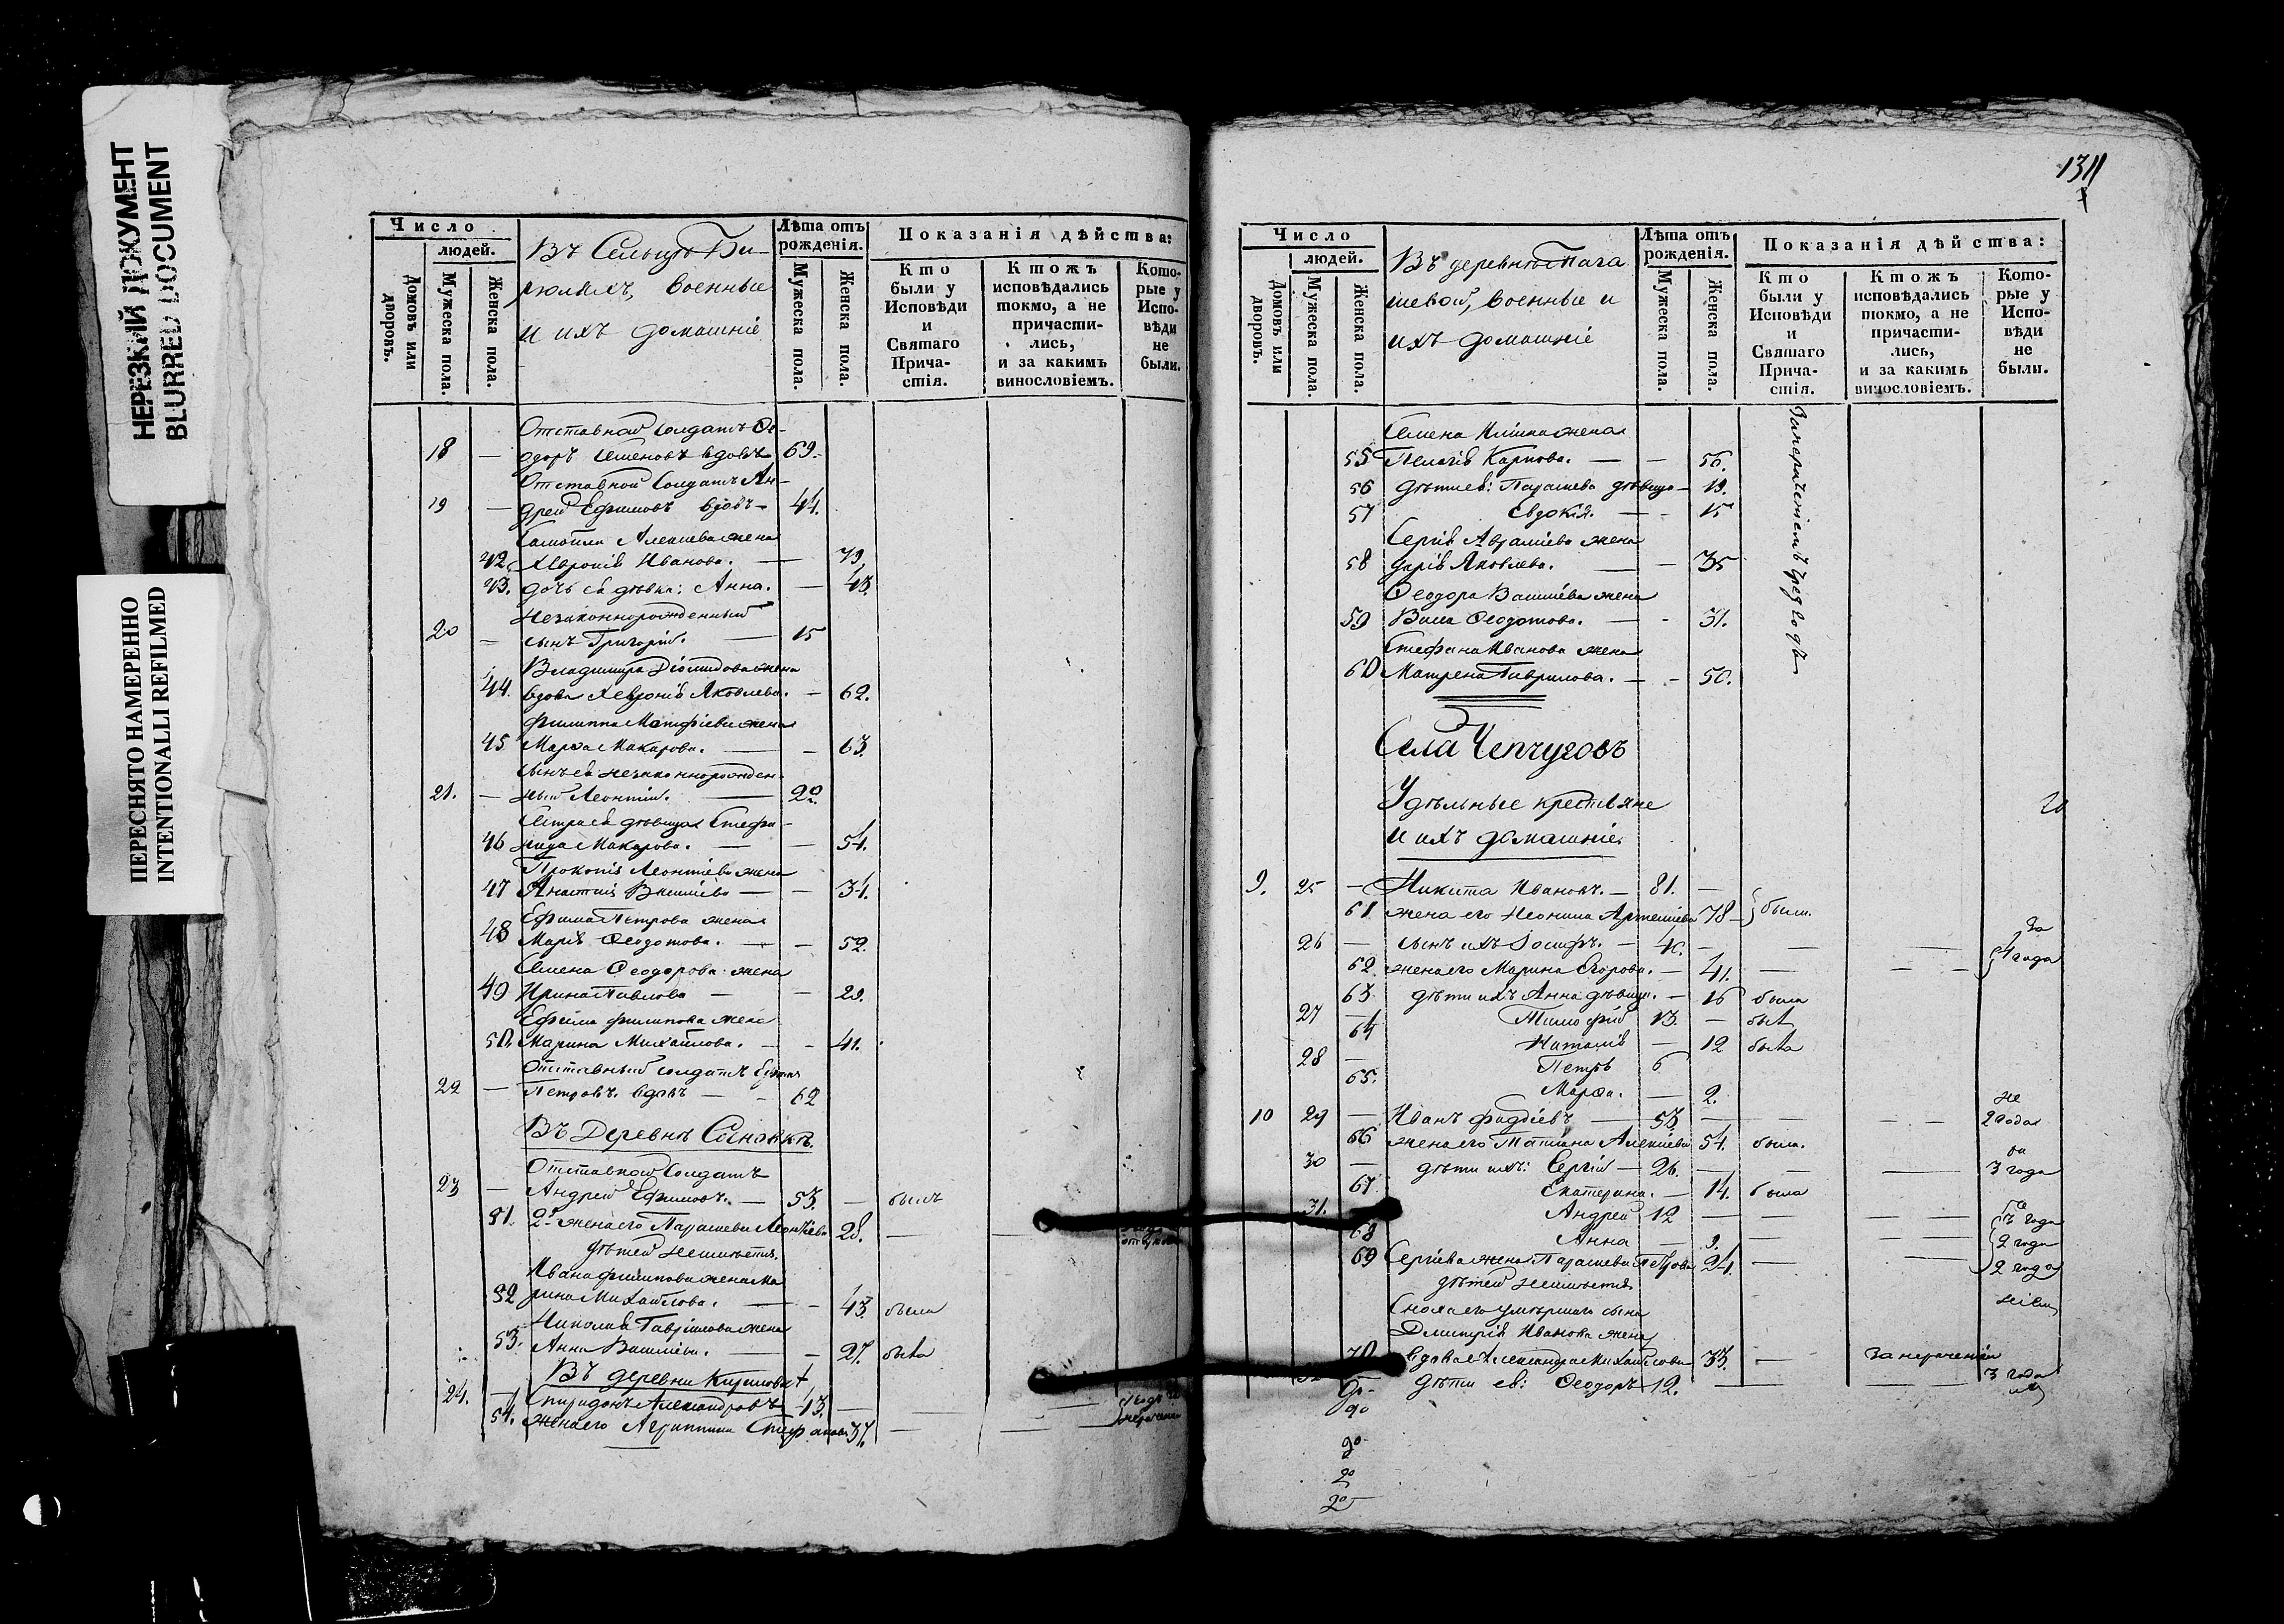 НЕРЕЗКИЙ ДОКУМЕНТ
BLURRED DOCUMENT
ПЕРЕСНЯТО НАМЕРЕННО
INTENTIONALLI REFILMED
Число
людей.
Домовъ или дворовъ.
Мужеска пола.
Женска пола.
Въ Сельцѣ Би-
рюляхъ, военные
и ихъ домашніе
Лѣта отъ рожденія.
Мужеска пола.
Женска пола.
Показанія дѣйства:
Кто были у Исповѣди и Святаго Прича-стія.
Ктожъ исповѣдались токмо, а не причасти-лись, и за какимъ винословіемъ.
Кото-рые у Испо-вѣди не были.
Отставной Солдатъ Ѳе-
18 — одоръ Семеновъ вдовъ 69.
Отставной Солдатъ Ан-
19 — дрей Ефимовъ вдовъ — 44.
Самойла Алексіева жена
42. Хевронія Иванова. — 79.
43. дочь ея дѣвка: Анна. — 43.
Незаконнорожденный
20 — сынъ Григорій. — 15
Владимира Діомидова жена
44. вдова Хевронія Яковлева. — 62.
Филиппа Матфіева жена
45 Марѳа Макарова. — — 63.
сынъ ея незаконнорожден-
21. — ный Леонтій. — 22.
Сестра ея дѣвица Стефа-
46 нида Макарова. — — 54.
Прокопія Леонтіева жена
47 Анастасія Василіева — — 34.
Ефима Петрова жена
48 Марія Ѳеодотова. — — 52.
Семена Ѳеодорова жена
49 Ирина Павлова — — 29.
Ефима Филипова жена
50. Марина Михайлова. — — 41.
Отставный солдатъ
22 — Петровъ. вдовъ — — 62
Въ Деревнѣ Сосновкѣ.
Отставной Солдатъ
23 — Андрей Ефимовъ. — 53. — былъ
51. 2я жена его Параскева Леонтіева 28. —
дѣтей неимѣетъ.
Ивана Филипова жена Ма
52 рина Михайлова. — — 43. была
Николая Гаврилова жена
53. Анна Василіева. — — 27. была
Въ деревни
24. — Спиридонъ Александровъ 43. —
54. жена его Агриппина Стефанова 37. —
131
Число
людей.
Домовъ или дворовъ.
Мужеска пола.
Женска пола.
Въ деревнѣ
военные и
ихъ домашніе
Лѣта отъ рожденія.
Мужеска пола.
Женска пола.
Показанія дѣйства:
Кто были у Исповѣди и Святаго Прича-стія.
Ктожъ исповѣдались токмо, а не причасти-лись, и за какимъ винословіемъ.
Кото-рые у Испо-вѣди не были.
Семена жена
55 Пелагія Карпова. — — 56.
56 дѣти ея: Параскева дѣвица — 19.
57 Евдокія. — — 15
Сергія Авраміева жена
58 Дарія Яковлева. — — 35
Ѳеодора Василіева жена
59 Васса Ѳеодотова. — - 31.
Стефана Иванова жена
60 Матрена Гаврилова. — - 50.
Села Чепчуговъ
Удѣльные крестьяне
и ихъ домашніе.
9. 25 — Никита Ивановъ. — 81. —
61. жена его Неонила Артеміева 78 — были.
26 — сынъ ихъ Іосифъ. —
62. жена его Марина Егорова. — 41. — 4 года
63 дѣти ихъ Анна дѣвица. — 16 была
27 — Тимофій 13. — былъ
64 Наталія — 12 была
28 — Петръ 6
65. Марѳа. — 2.
10 29 — Иванъ Фаддіевъ — 53. — 2 года
66 жена его Татіана Алексіева 54. была.
30 — дѣти ихъ: Сергій — 26. — 3 года
67. Екатерина. — 14. была
31. Андрей 12 — — года
68 Анна — 9. — 2 года
69 Сергіева жена Параскева Петрова 24. — 2 года
дѣтей неимѣетъ.
Сноха его умершаго сына
Димитрія Иванова жена
70 вдова Александра Михайлова 33. — за нераченіем
дѣти ея: Ѳеодоръ 12. — 3 года